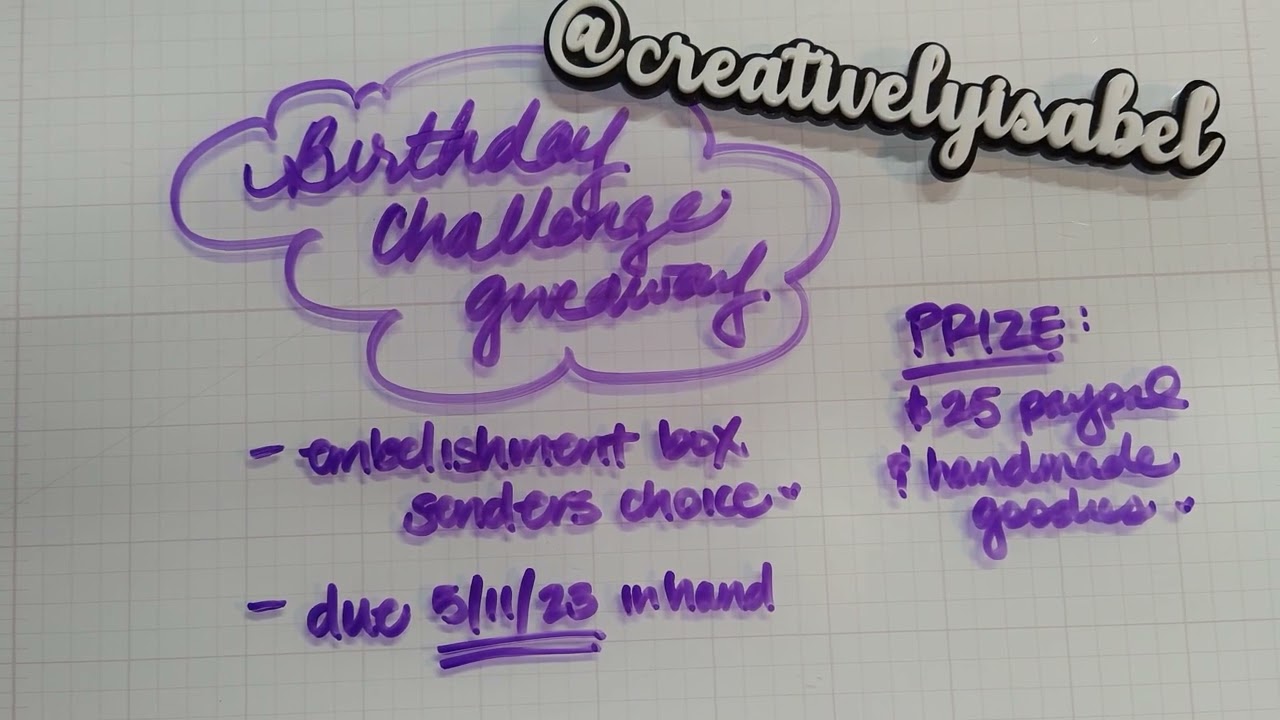 @creativelyisabel
Birthday
Challenge
giveaway
- embelishment box
senders choice
- due 5/11/23 in hand
PRIZE:
$25 paypal
& handmade
goodies